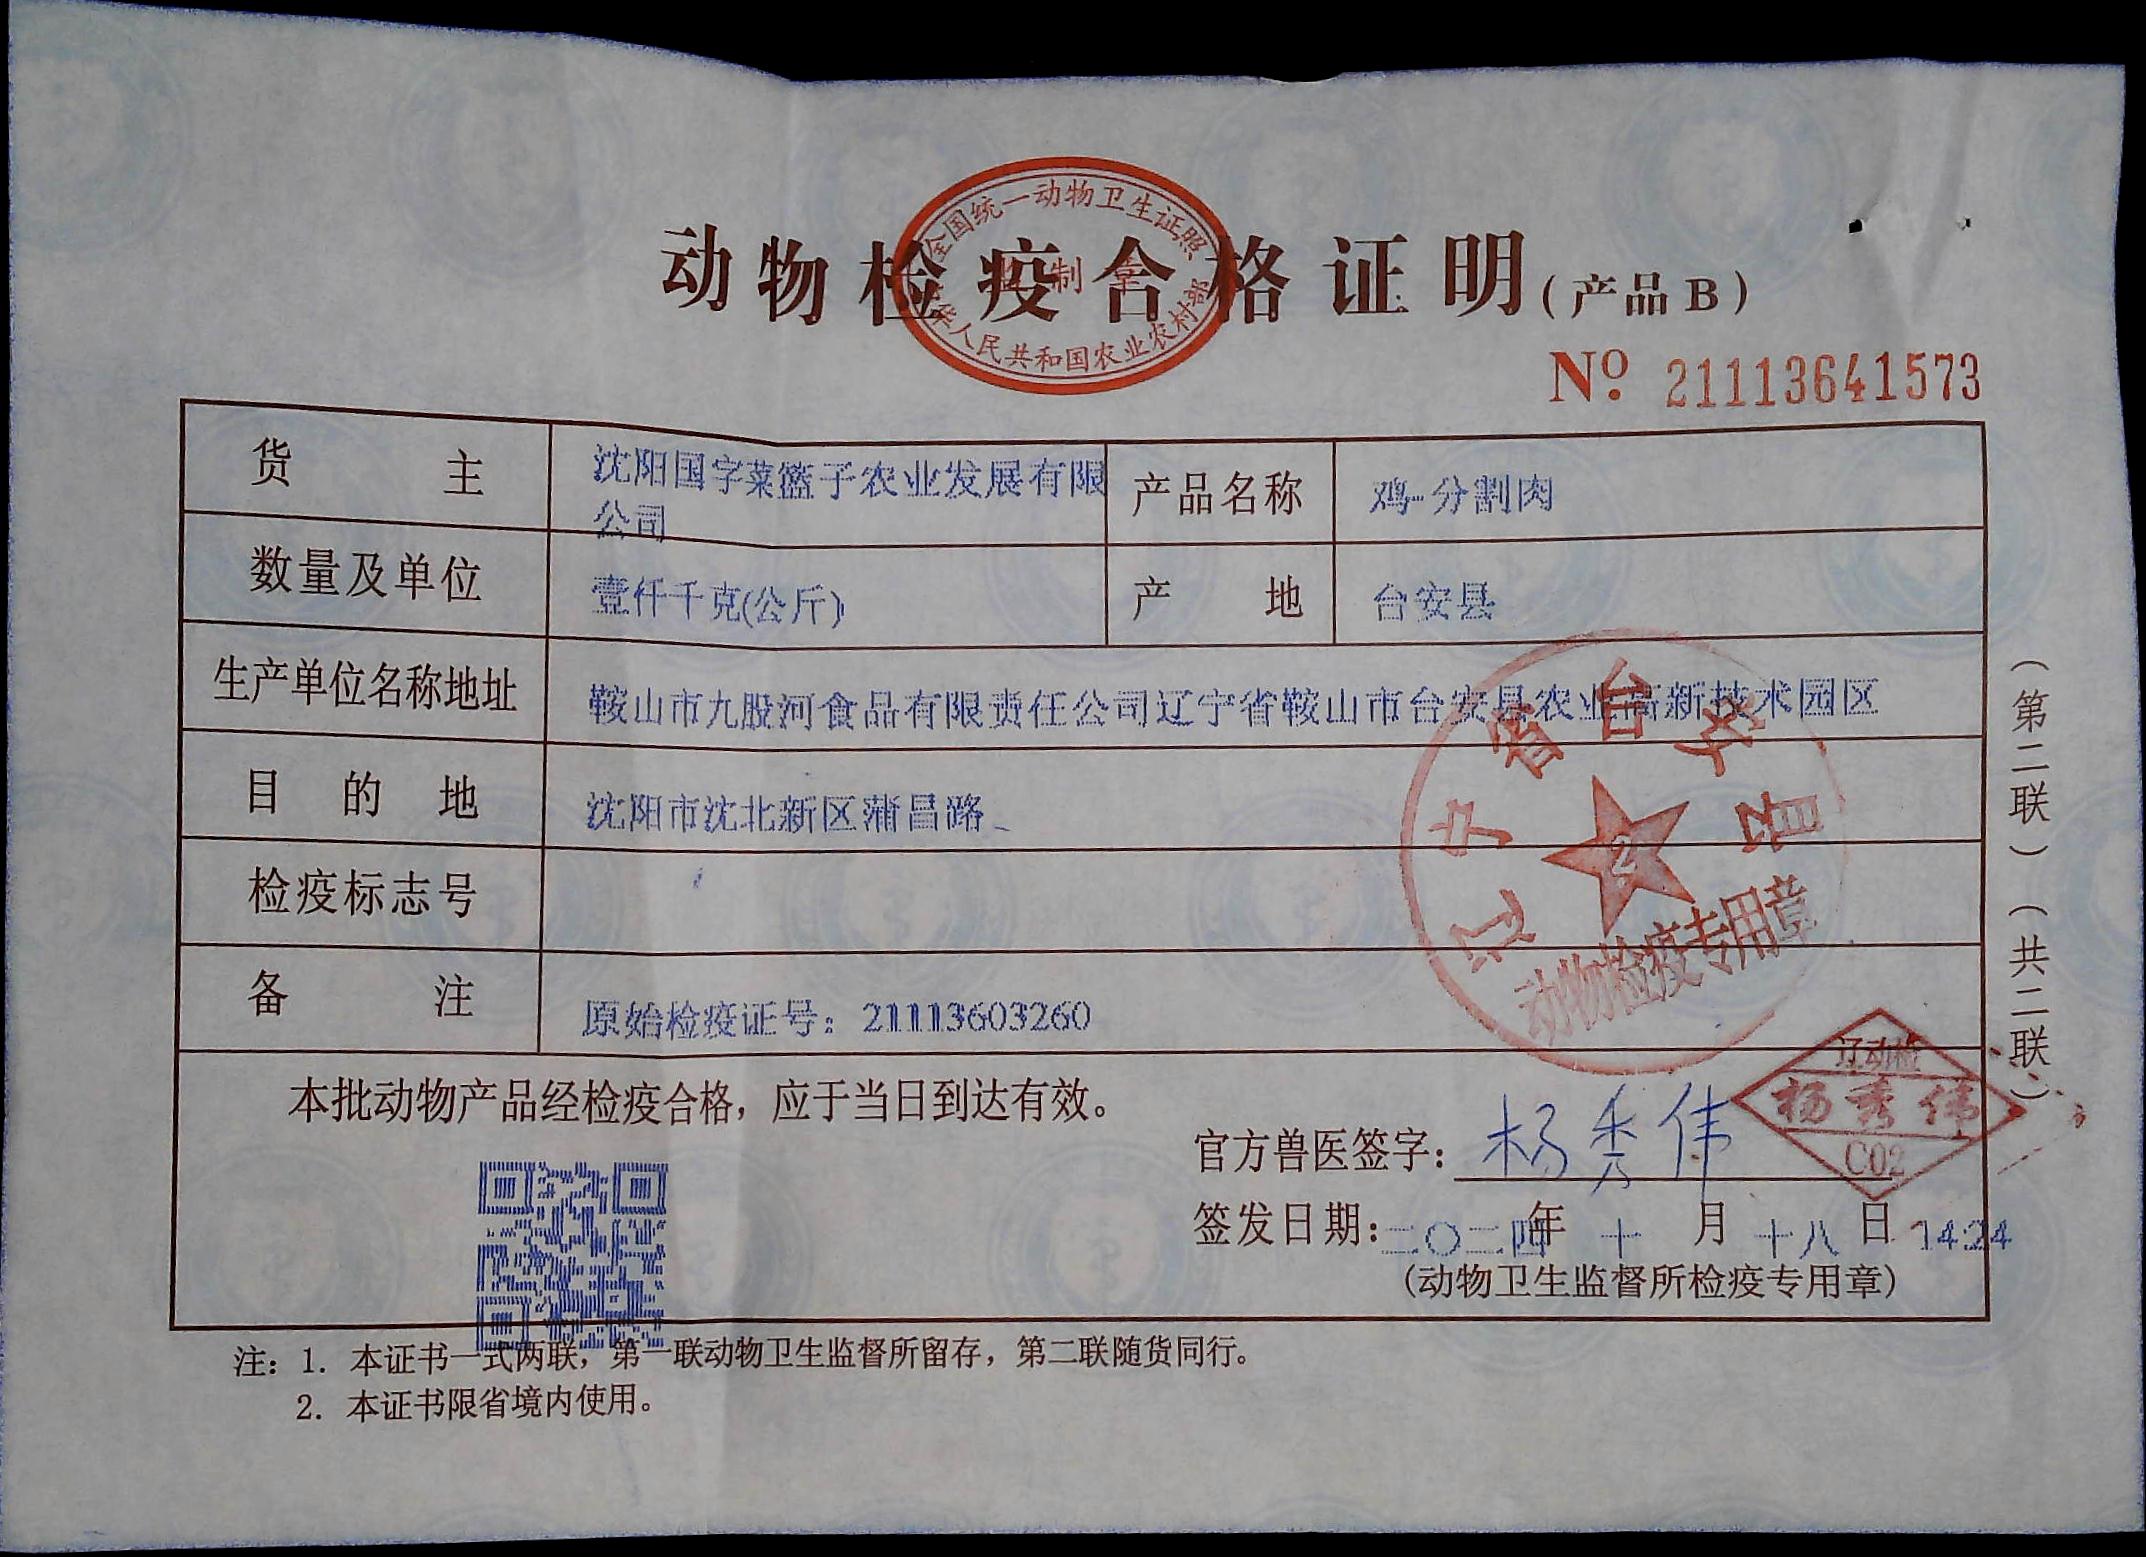 动物检疫合格证明(产品B)
全国统一动物卫生证照
监制章
中华人民共和国农业农村部
No. 21113641573
货主 沈阳国字菜篮子农业发展有限公司 产品名称 鸡-分割肉
数量及单位 壹仟千克(公斤) 产地 台安县
生产单位名称地址 鞍山市九股河食品有限责任公司辽宁省鞍山市台安县农业高新技术园区
目的地 沈阳市沈北新区蒲昌路
检疫标志号
备注 原始检疫证号：21113603260
辽宁省台安县
2
动物检疫专用章
(第二联)(共二联)
本批动物产品经检疫合格，应于当日到达有效。
官方兽医签字：杨秀伟
辽动检
杨秀伟
C02
签发日期：二〇二四年十月十八日 1424
(动物卫生监督所检疫专用章)
注：1. 本证书一式两联，第一联动物卫生监督所留存，第二联随货同行。
2. 本证书限省境内使用。